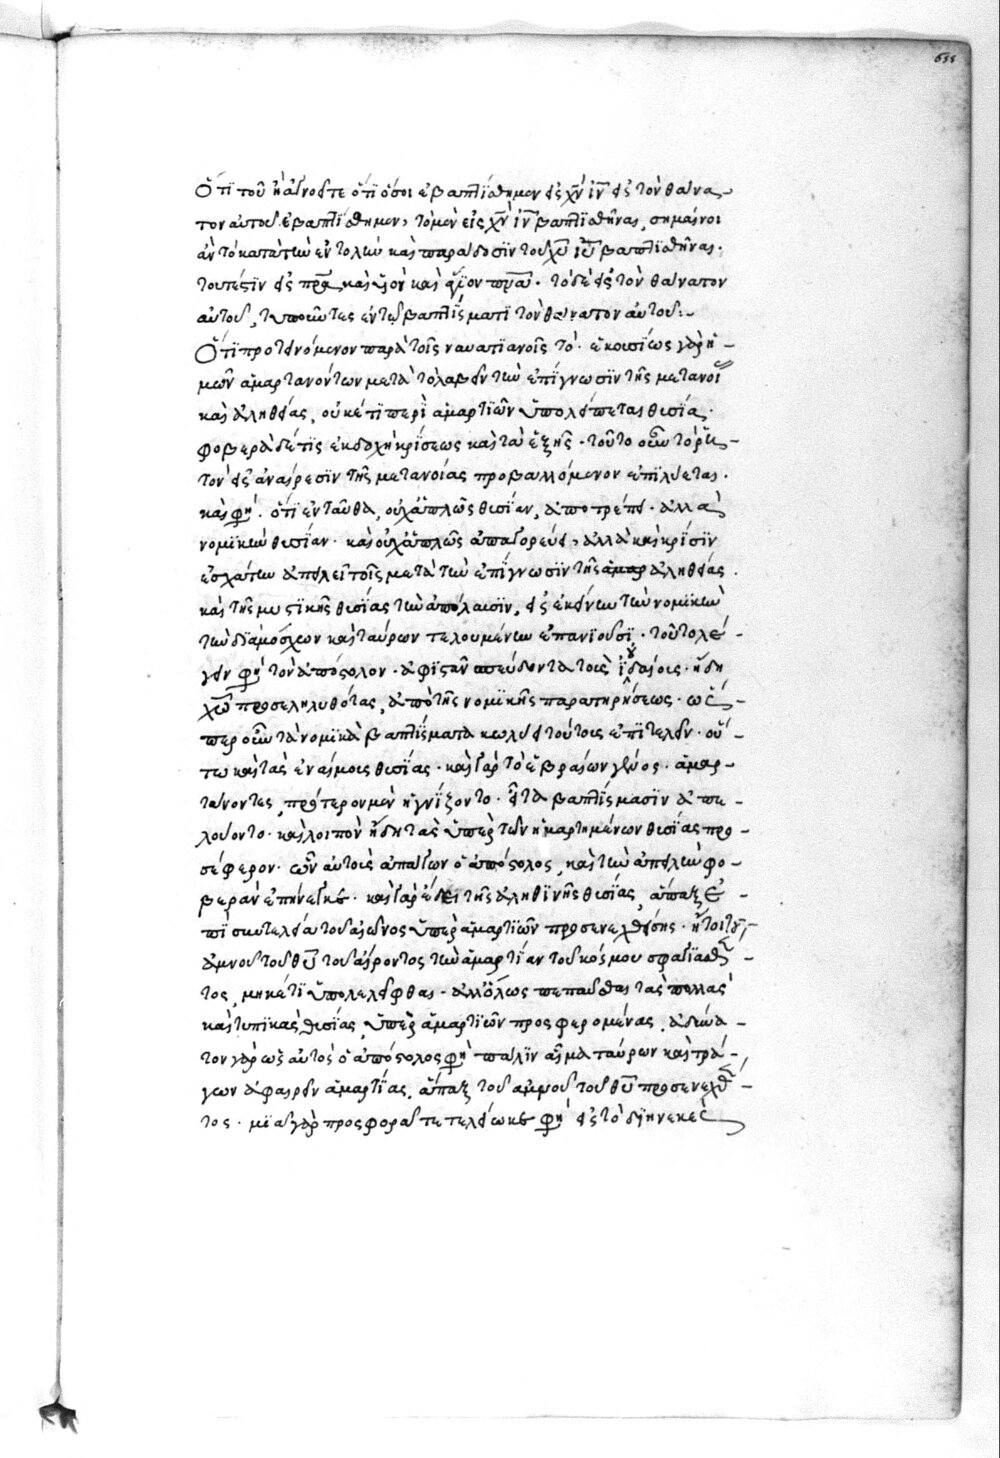 655
Ὅτι τοῦ ἢ ἀγνοεῖτε ὅτι ὅσοι ἐβαπτίσθημεν εἰς χν ιν εἰς τὸν θάνα-
τον αὐτοῦ ἐβαπτίσθημεν, τὸ μὲν εἰς χν ιν βαπτισθῆναι, σημαίνοι
ἂν τὸ κατὰ τὴν ἐντολὴν καὶ παράδοσιν τοῦ χυ ιυ βαπτισθῆναι·
τουτέστιν εἰς πρα καὶ υἱὸν καὶ ἅγιον πνα· τὸ δὲ εἰς τὸν θάνατον
αὐτοῦ, τυποῦντες ἐν τῷ βαπτίσματι τὸν θάνατον αὐτοῦ:-
Ὅτι προτεινόμενον παρὰ τοῖς ναυατιανοῖς τό· ἑκουσίως γὰρ ἡ-
μῶν ἁμαρτανόντων μετὰ τὸ λαβεῖν τὴν ἐπίγνωσιν τῆς μετανοί
καὶ ἀληθείας, οὐκέτι περὶ ἁμαρτιῶν ὑπολείπεται θυσία·
φοβερὰ δέ τις ἐκδοχὴ κρίσεως καὶ τὰ ἑξῆς· τοῦτο οὖν τὸ ῥη-
τὸν εἰς ἀναίρεσιν τῆς μετανοίας προβαλλόμενον ἐπιλύεται·
καὶ φη· ὅτι ἐνταῦθα, οὐχ ἁπλῶς θυσίαν, ἀποτρέπει· ἀλλὰ
νομικὴν θυσίαν· καὶ οὐχ ἁπλῶς ἀπαγορεύει, ἀλλὰ καὶ κρίσιν
ἐσχάτην ἀπειλεῖ τοῖς μετὰ τὴν ἐπίγνωσιν τῆς ἀληθείας
καὶ τῆς μυστικῆς θυσίας τὴν ἀπόλαυσιν, εἰς ἐκείνην τὴν νομικὴν
τὴν διὰ μόσχων καὶ ταύρων τελουμένην ἐπανιοῦσι· τοῦτο λέ-
γειν φη τὸν ἀπόστολον· ἀφισταν σπεύδοντα τοὺς ἰουδαίους· ἤδη
χω προσεληλυθότας, ἀπὸ τῆς νομικῆς παρατηρήσεως· ὡσ-
περ οὖν τὰ νομικὰ βαπτίσματα κωλύει τούτοις ἐπιτελεῖν· οὕ-
τω καὶ τὰς ἐναίμους θυσίας· καὶ γὰρ τὸ ἑβραίων γένος· ἁμαρ-
τάνοντες, πρότερον μὲν ἡγνίζοντο· εἶτα βαπτίσμασιν ἀπε-
λούοντο· καὶ λοιπὸν ἤδη τὰς ὑπὲρ τῶν ἡμαρτημένων θυσίας προ-
σέφερον· ὧν αὐτοὺς ἀπάγων ὁ ἀπόστολος, καὶ τὴν ἀπειλὴν φο-
βερὰν ἐπήνεγκε· καὶ γὰρ ἔδει τῆς ἀληθινῆς θυσίας, ἅπαξ ἐ-
πὶ συντελείᾳ τοῦ αἰῶνος ὑπὲρ ἁμαρτιῶν προσενεχθείσης· ἤτοι τοῦ
ἀμνοῦ τοῦ θυ τοῦ αἴροντος τὴν ἁμαρτίαν τοῦ κόσμου σφαγιασθέν-
τος, μηκέτι ὑπολελεῖφθαι· ἀλλ' ὅλως πεπαῦσθαι τὰς πολλὰς
καὶ τυπικὰς θυσίας, ὑπὲρ ἁμαρτιῶν προσφερομένας, ἀδύνα-
τον γὰρ ὡς αὐτὸς ὁ ἀπόστολος φη πάλιν αἷμα ταύρων καὶ τρά-
γων ἀφαιρεῖν ἁμαρτίας, ἅπαξ τοῦ ἀμνοῦ τοῦ θυ προσενεχθέν-
τος· μιᾷ γὰρ προσφορᾷ τετελείωκε φη εἰς τὸ διηνεκὲς